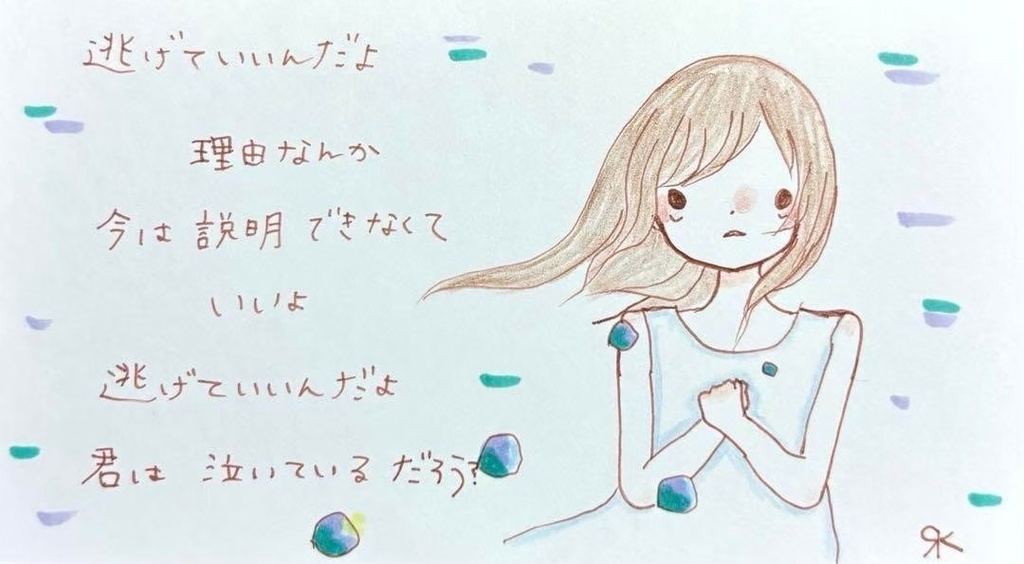 逃げていいんだよ
理由なんか
今は説明できなくて
いいよ
逃げていいんだよ
君は 泣いている だろう?